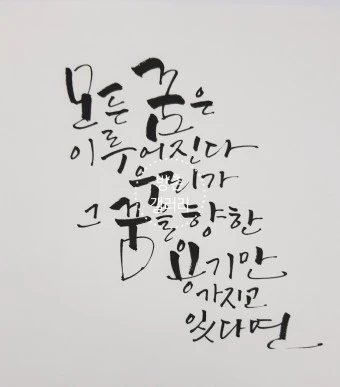 모든 꿈은
이루어진다
우리가
그 꿈을 향한
용기만
가지고
있다면